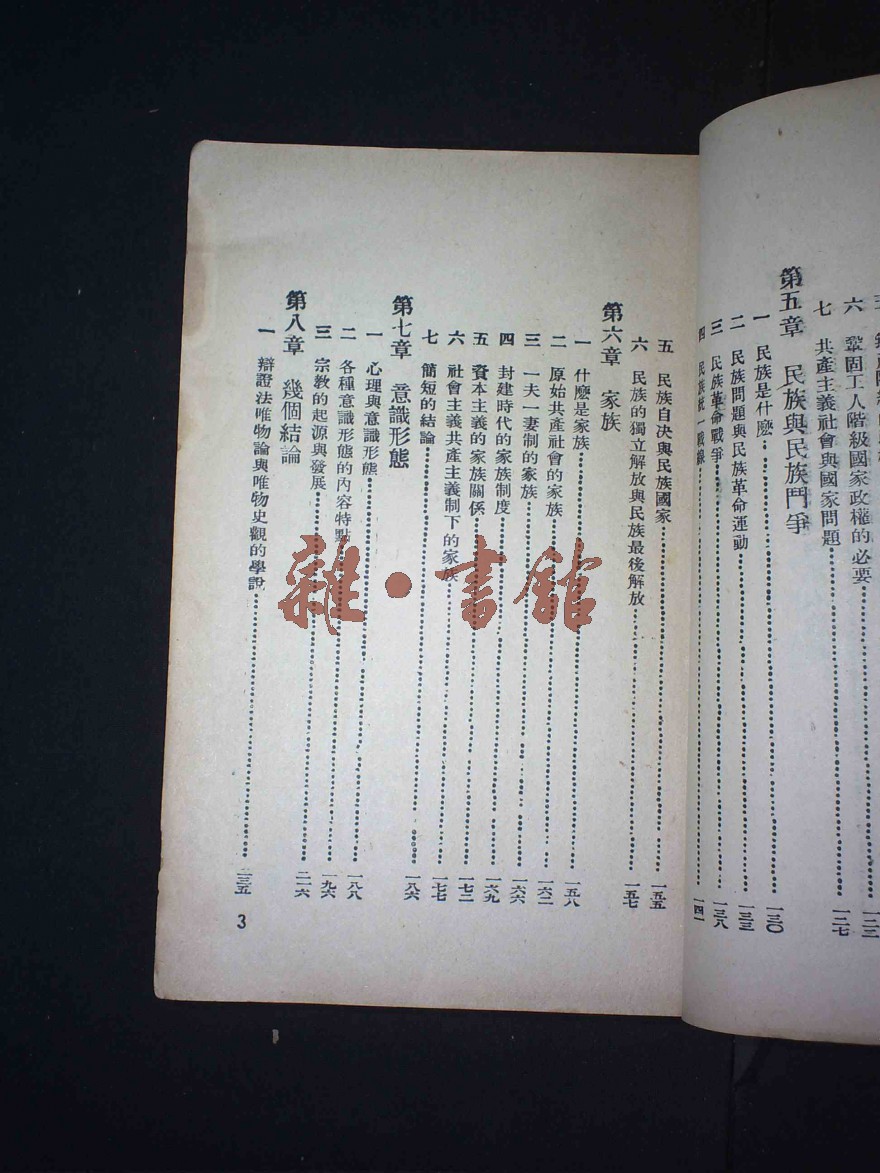 六 鞏固工人階級國家政權的必要……
七 共產主義社會與國家問題……一二七
第五章 民族與民族鬥爭
一 民族是什麽……一三〇
二 民族問題與民族革命運動……一三三
三 民族革命戰爭……一三八
四 民族統一戰線……一四一
五 民族自决與民族國家……一五五
六 民族的獨立解放與民族最後解放……一五七
第六章 家族
一 什麽是家族……一五八
二 原始共產社會的家族……一六二
三 一夫一妻制的家族……一六六
四 封建時代的家族制度……一六九
五 資本主義的家族關係……一七三
六 社會主義共產主義制下的家族……一七七
七 簡短的結論……一八六
第七章 意識形態
一 心理與意識形態……一八八
二 各種意識形態的內容特點……一九六
三 宗教的起源與發展……二一六
第八章 幾個結論
一 辯證法唯物論與唯物史觀的學說……二三五
3
雜·書館